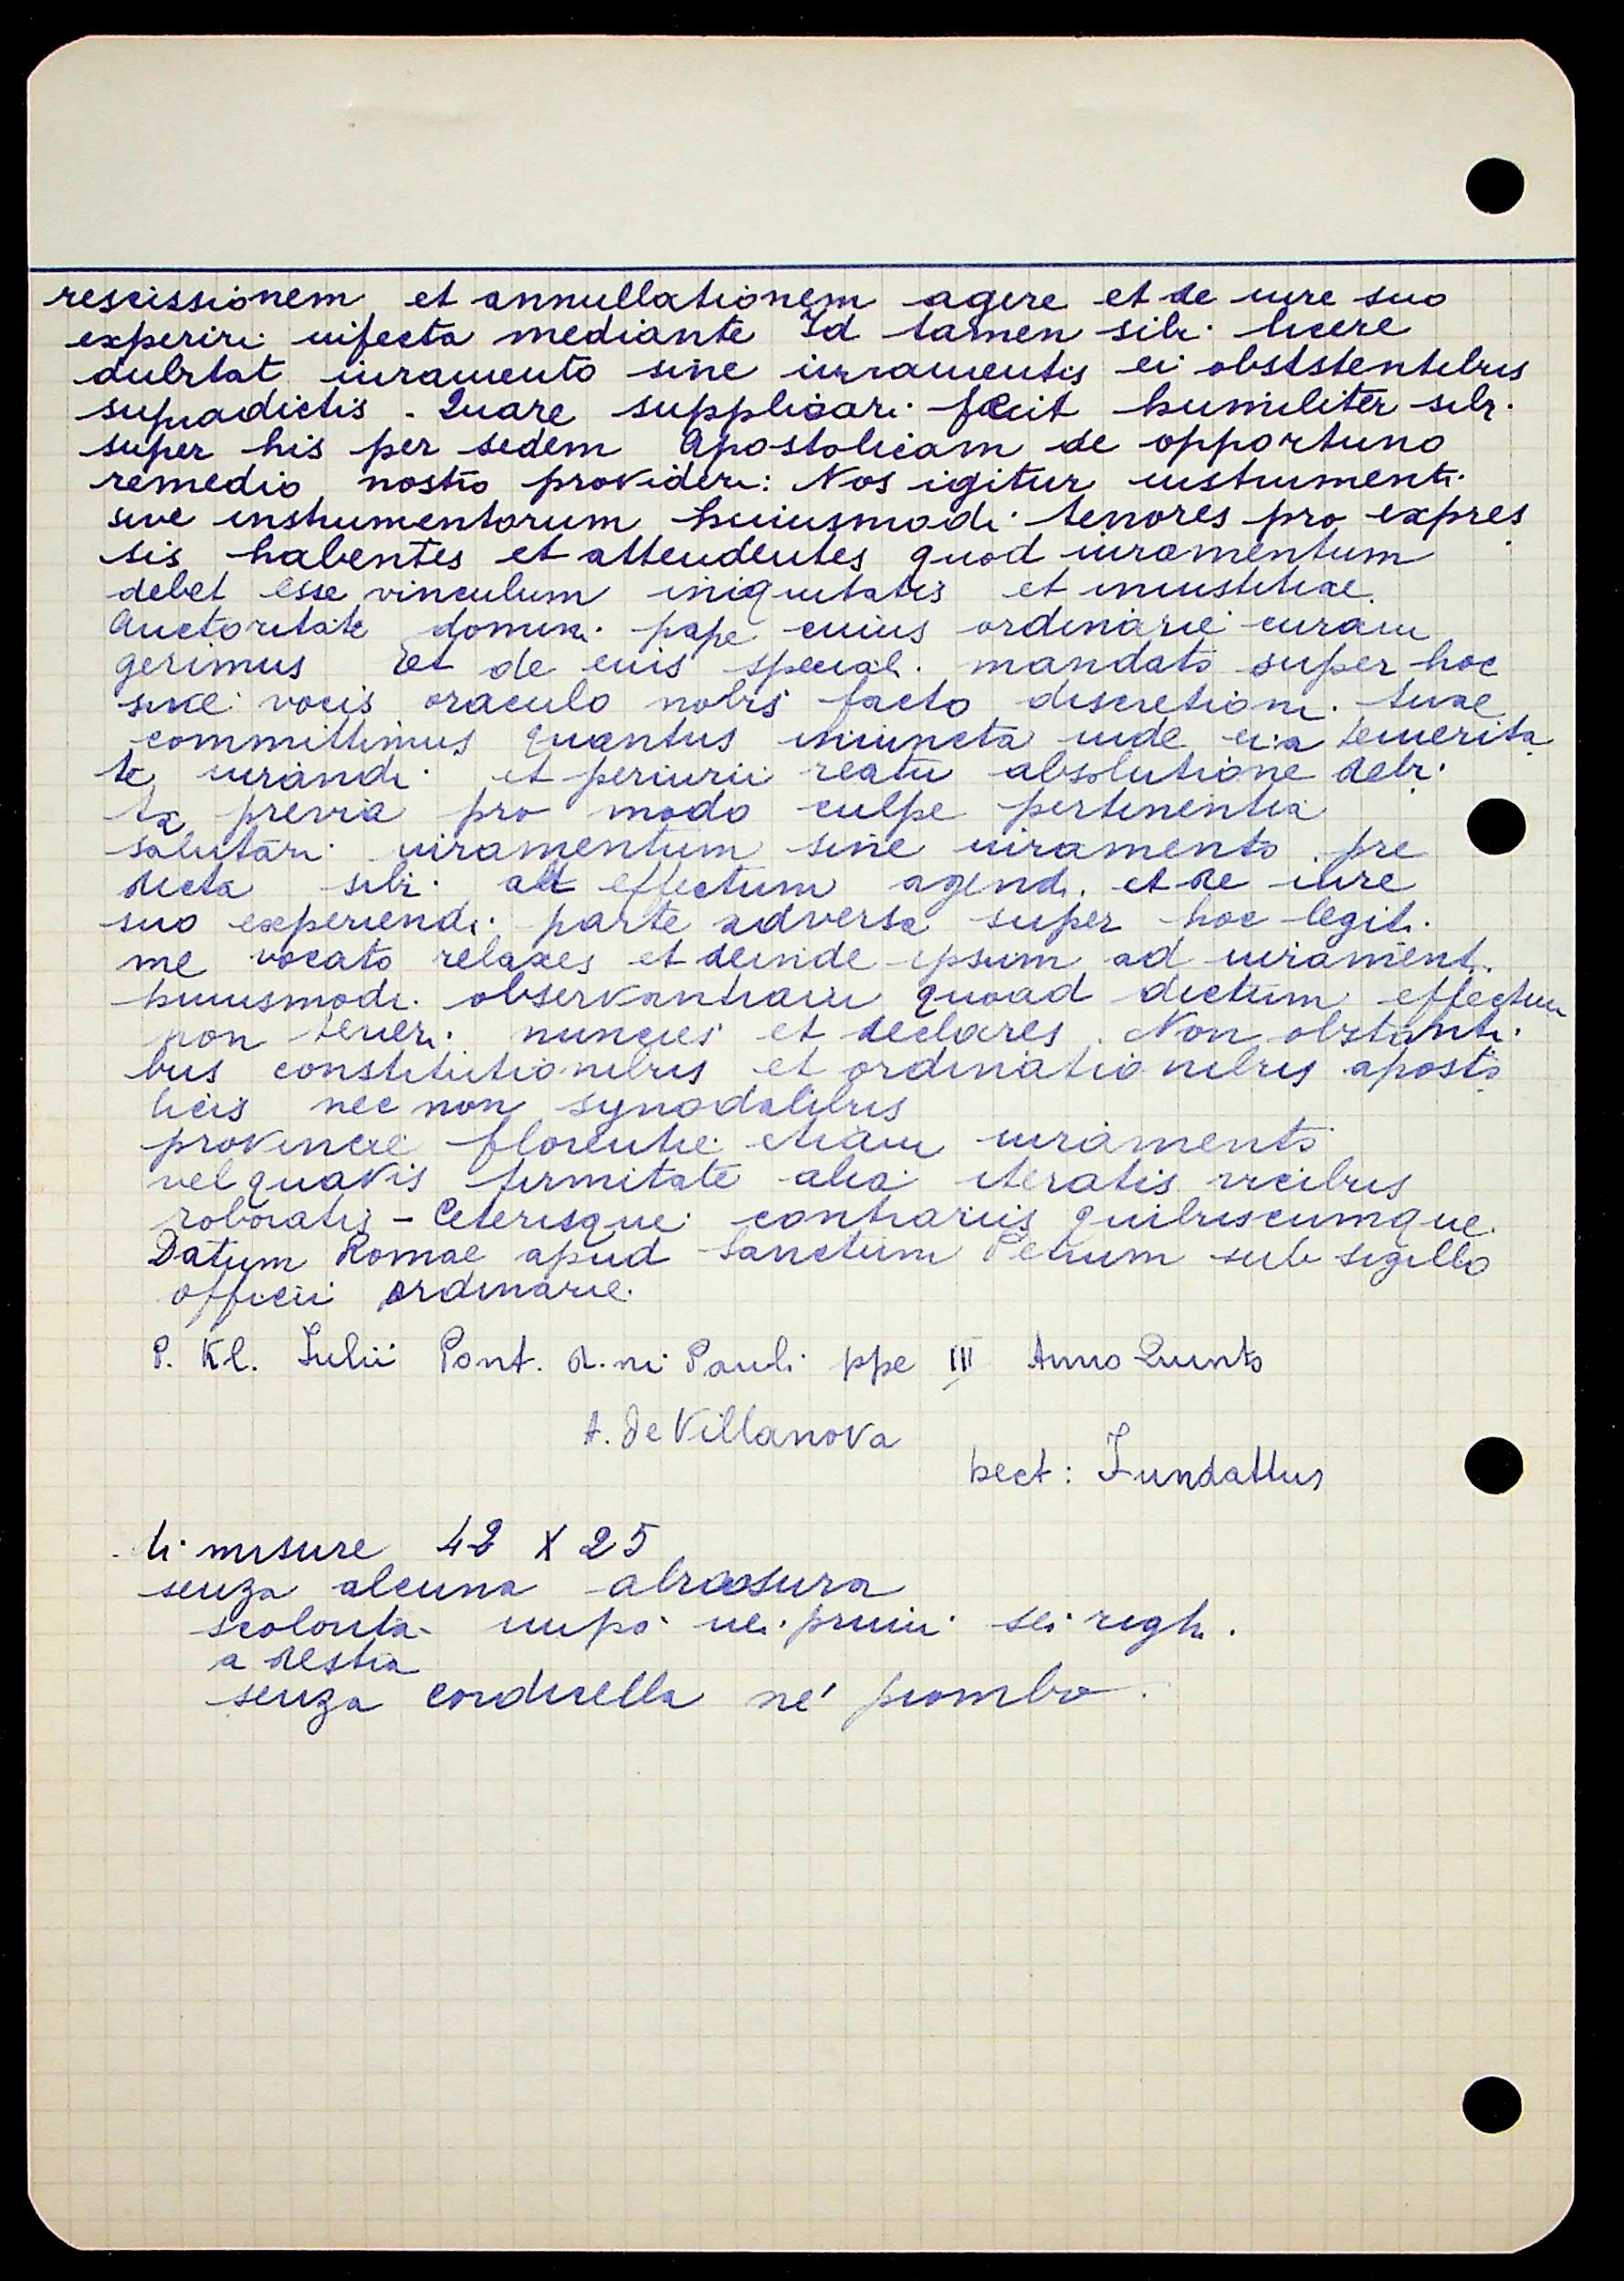 rescissionem et annullationem agere et de iure suo
experiri infecta mediante Id tamen sibi licere
dubitat iuramento sine iuramentis ei obstentibus
supradictis - Quare supplicari fecit humiliter sibi
super his per sedem Apostolicam de opportuno
remedio nostro provideri: Nos igitur instrumenti
sive instrumentorum huiusmodi tenores pro expres
sis habentes et attendentes quod iuramentum
debet esse vinculum iniquitatis et iniustitiae.
Auctoritate domini pape cuius ordinarie curam
gerimus Et de eius speciali mandato super hoc
sive vocis oraculo nobis facto discretioni tuae
committimus quantus iniuncta inde ei a temerita
te iurandi et periurii reatu absolutione debi
ta previa pro modo culpe pertinentia
salutari iuramentum sine iuramento pre
dicta sibi ad effectum agendi et de iure
suo experiendi parte adversa super hoc legiti
me vocato relaxes et deinde ipsum ad iurament.
huiusmodi observantiam quoad dictum effectum
non teneri nuncies et declares. Non obstanti
bus constitutionibus et ordinationibus aposto
licis nec non synodalibus
provincie florentie etiam iuramento
vel quavis firmitate alia iteratis vicibus
roboratis - Ceterisque contrariis quibuscumque.
Datum Romae apud Sanctum Petrum sub sigillo
officii ordinarie.
P. Kl. Iulii Pont. d. ni Pauli ppe III Anno Quinto
A. De Villanova
Fundattus
misure 42 X 25
senza alcuna abrasura
scolorita un po' nei primi sei righi.
a destra
senza cordicella né piombo.